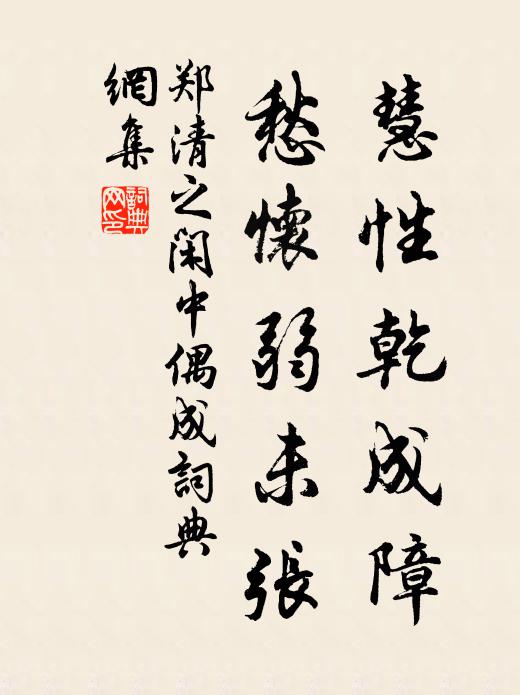 慧性乾成障
愁懷弱未張
郑清之闲中偶成詞典
網集
詞典網印